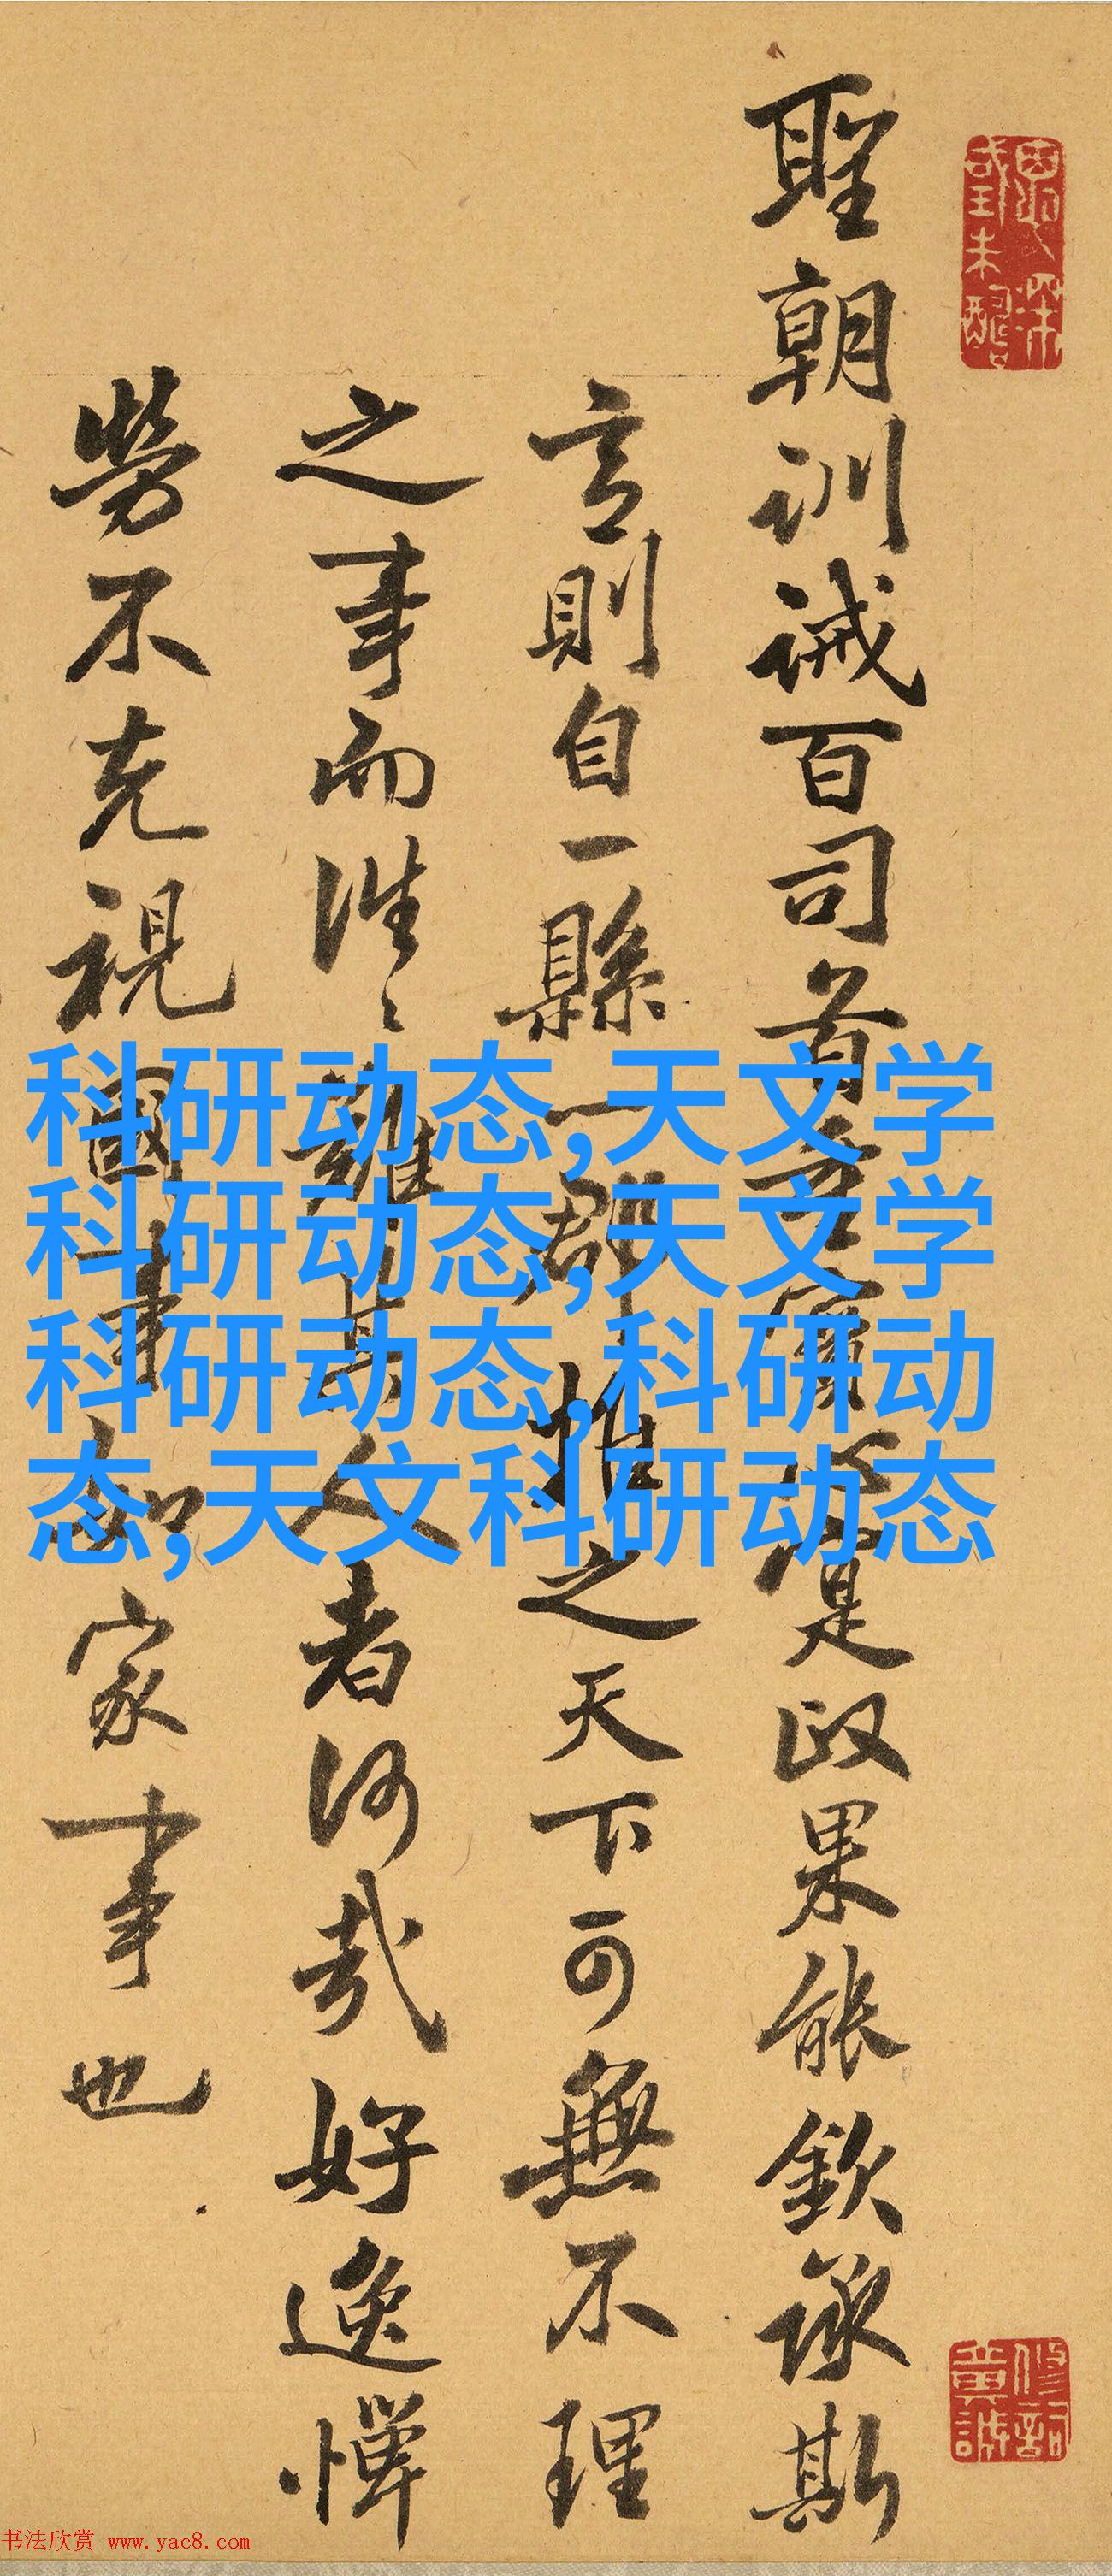 聖朝訓誡百司首
是政果能欽承斯
言則自一縣一郡推之天下可無不理
之事而往〻難其人者何哉好逸憚
勞不克視國事如家事也
科研动态,天文学
科研动态,天文学
科研动态,科研动
态,天文科研动态
书法欣赏 www.yac8.com